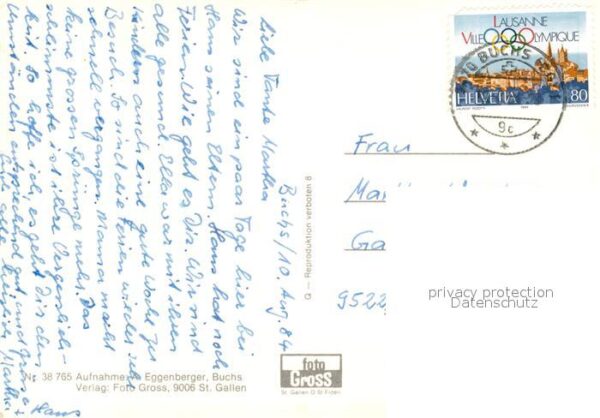 Buchs / 10. Aug. 84
Liebe Tante Martha
Wir sind ein paar Tage hier bei
Hans seinen Eltern. Hans hat noch
Ferien. Wie geht es Dir. Wir sind
alle gesund. Ella war mit ihren
Kindern auch eine gute Woche zu
Besuch. So sind die Ferien wieder
schnell vergangen. Mama macht
keine grossen Sprünge mehr. Das
schlimmste ist ihre Vergesslich-
keit. So hoffe ich, es geht Dir den
Umständen entsprechend gut und
alle
herzlich Martha +
Hans
LAUSANNE
VILLE OLYMPIQUE
HELVETIA 80
BUCHS
9c
Frau
Ma
Ga
9522
privacy protection
Datenschutz
Q — Reproduktion verboten 8
foto
Gross
St. Gallen
Nr. 38 765 Aufnahme: Eggenberger, Buchs
Verlag: Foto Gross, 9006 St. Gallen